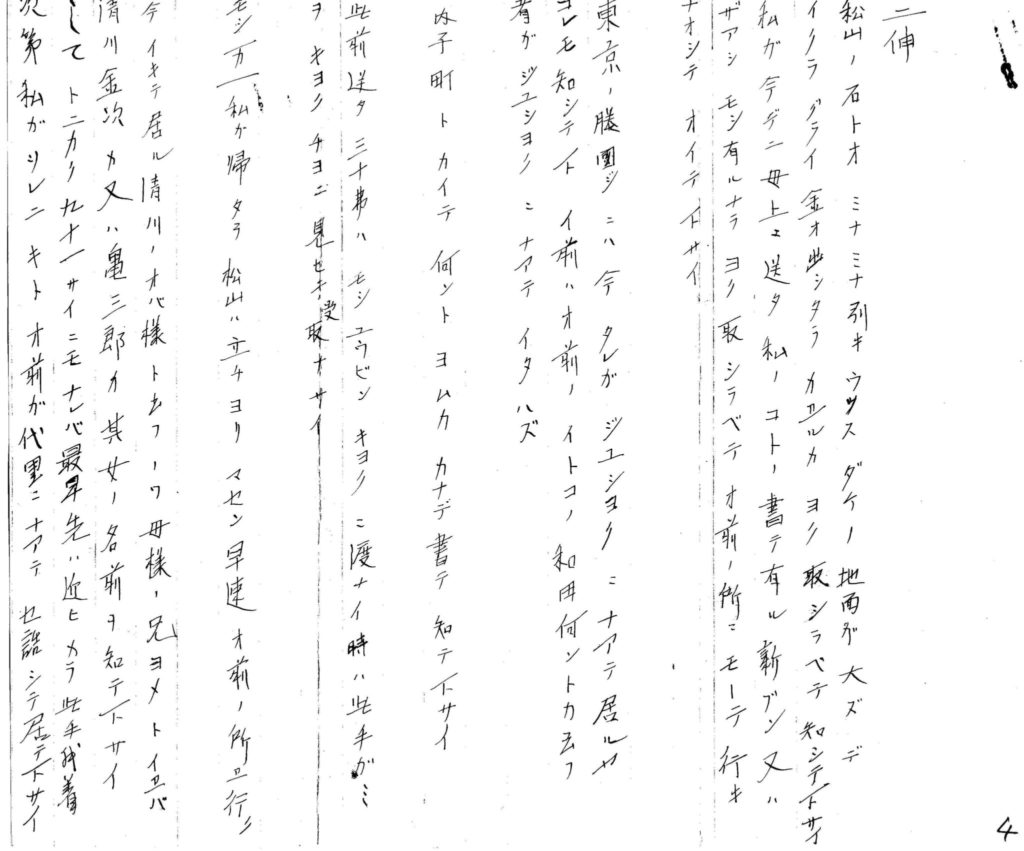 二伸
松山ノ石トオミナミナ引キウツスダケノ地面ガ大ズデ
イクラグライ金オ出シタラカエルカヨク取シラベテ知シテ下サイ
私ガ今デニ母上エ送タ私ノコトノ書テ有ル新ブン又ハ
ザアシモシ有ルナラヨク取シラベテオ前ノ所ニモーテ行キ
ナオシテオイテ下サイ
東京ノ勝圓ジニハ今タレガジユシヨクニナアテ居ルヤ
コレモ知シテ下イ前ハオ前ノイトコノ和田何ントカ云フ
者ガジユシヨクニナアテイタハズ
内子町トカイテ何ントヨムカカナデ書テ知テ下サイ
此前送タ三十弗ハモシユウビンキヨクニ渡ナイ時ハ此手ガミ
ヲキヨクチヨニ見セテ受取ナサイ
モシカ一私ガ帰タラ松山ハ立チヨリマセン早速オ前ノ所エ行ク
今イキテ居ル清川ノオバ様ト云フノワ母様ノ兄ヨメトイエバ
清川金次カ又ハ亀三郎カ其女ノ名前ヲ知テ下サイ
して トニカク九十一サイニモナレバ最早先ハ近ヒカラ此手紙着
次第私ガソレニキトオ前ガ代理ニナアテセ話シテ居テ下サイ
4